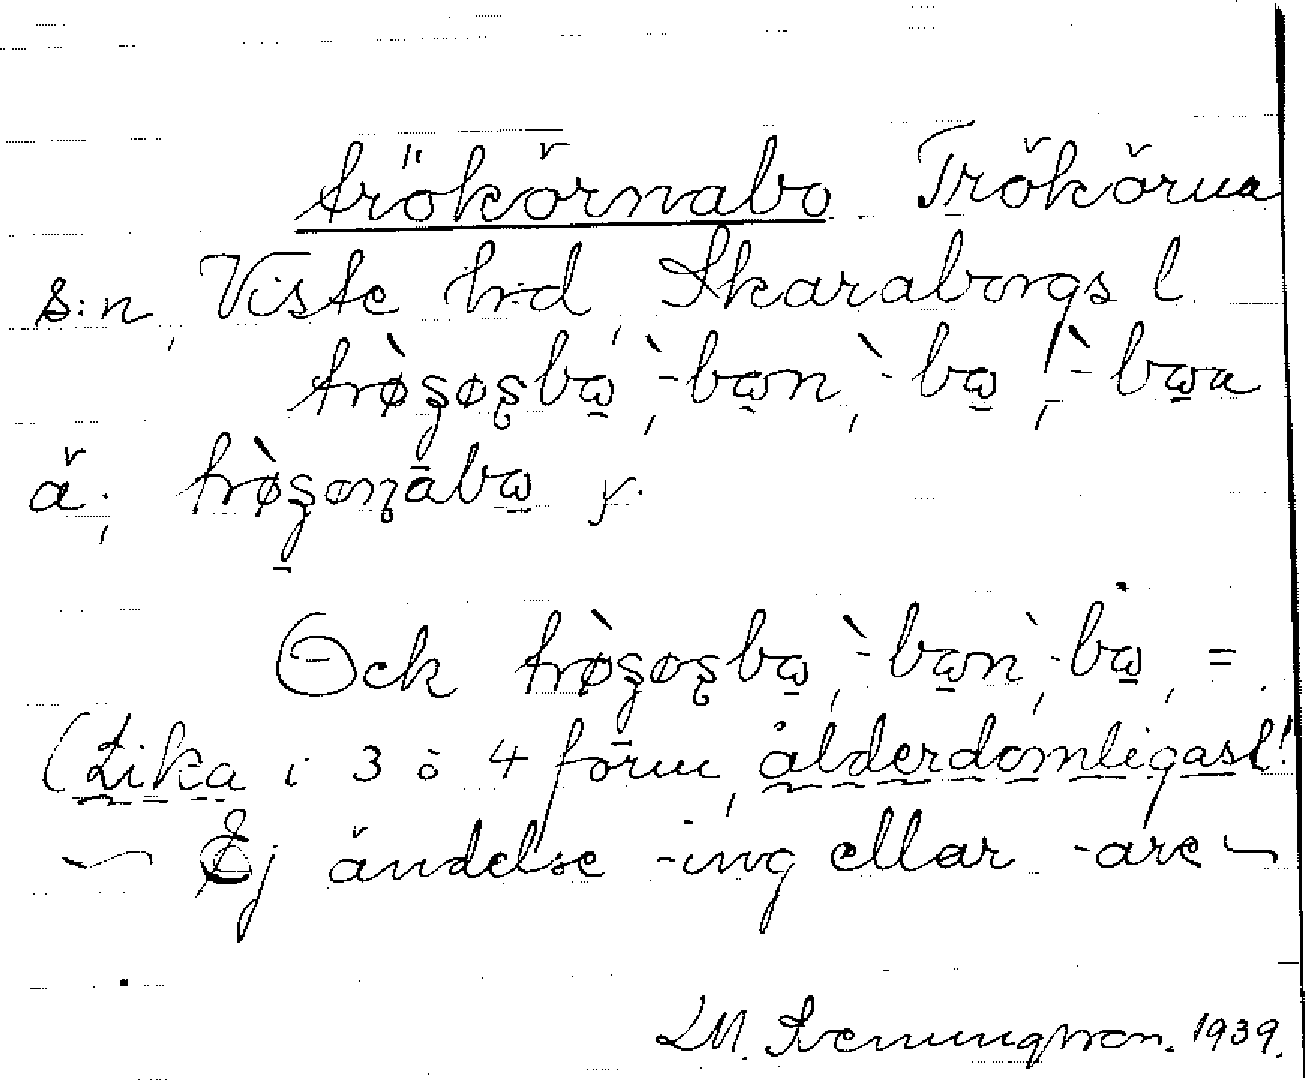 trökörnabo Trökörna
s:n, Viste hrd, Skaraborgs l
trø̀ʂøʂbɷ, -̀bɷn, -̀bɷ, -̀bɷa
ä., trø̀ʂøɳabɷ y.
Ock trø̀ʂøʂbɷ, -̀bɷn, -̀bɷ, =
(Lika i 3 o 4 form, ålderdomligast!
Ej ändelse -ing ellar -are
LM. Svenungsson. 1939.